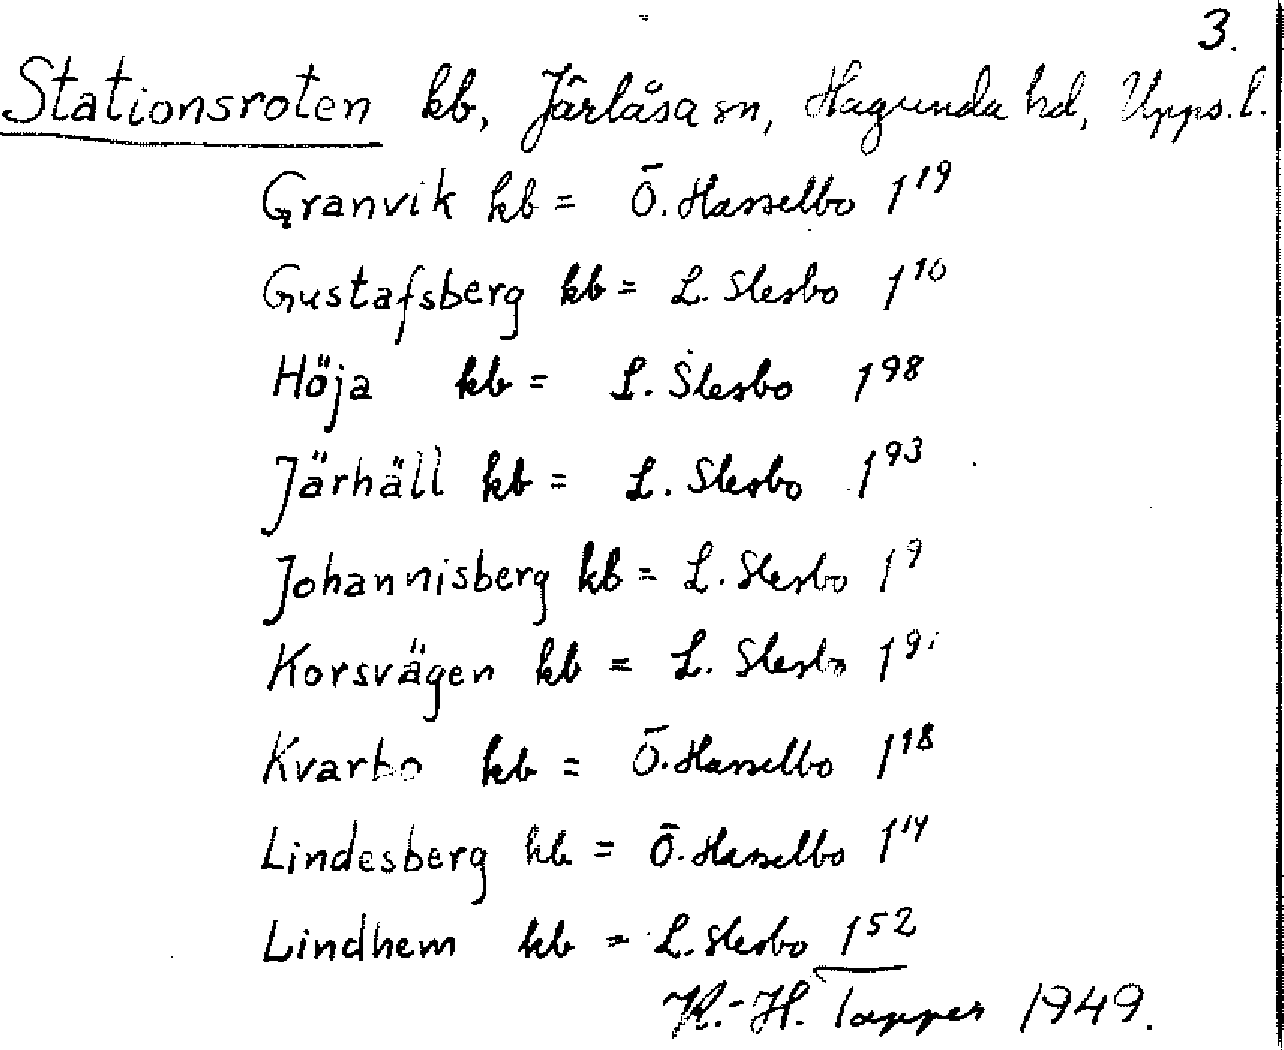 3.
Stationsroten kb, Järlåsa sn, Hagunda hd, Upps. l.
Granvik kb = Ö. Hasselbo 1¹⁹
Gustafsberg kb = L. Slesbo 1¹⁰
Höja kb = L. Slesbo 1⁹⁸
Järhäll kb = L. Slesbo 1⁹³
Johannisberg kb = L. Slesbo 1⁹
Korsvägen kb = L. Slesbo
Kvarbo kb = Ö. Hasselbo 1¹⁸
Lindesberg kb = Ö. Hasselbo 1¹⁴
Lindhem kb = L. Slesbo 1⁵²
K.-H. Tapper 1949.